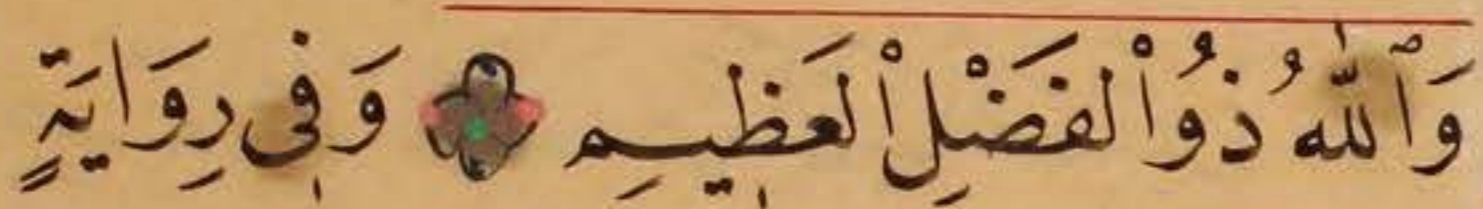 وَٱللّٰهُ ذُواْلفَضْلِ اْلعَظِيمِ وَفِى رِوَايَةٍ